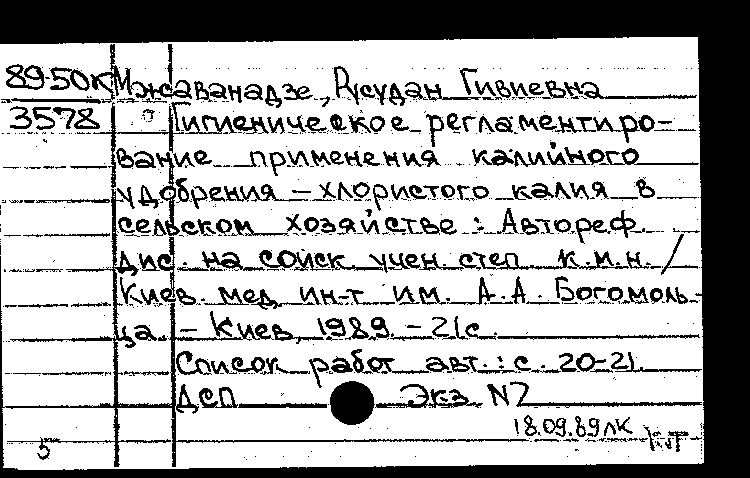 89-50К Мжаванадзе, Русудан Гивиевна
3578 Гигиеническое регламентиро-
вание применения калийного
удобрения – хлористого калия в
сельском хозяйстве : Автореф.
дис. на соиск. учен. степ. к.м.н. /
Киев. мед. ин-т им. А.А. Богомоль-
ца. – Киев, 1989. – 21с.
Список работ авт.: с. 20-21.
ДСП Экз. N7
18.09.89 ЛК
5